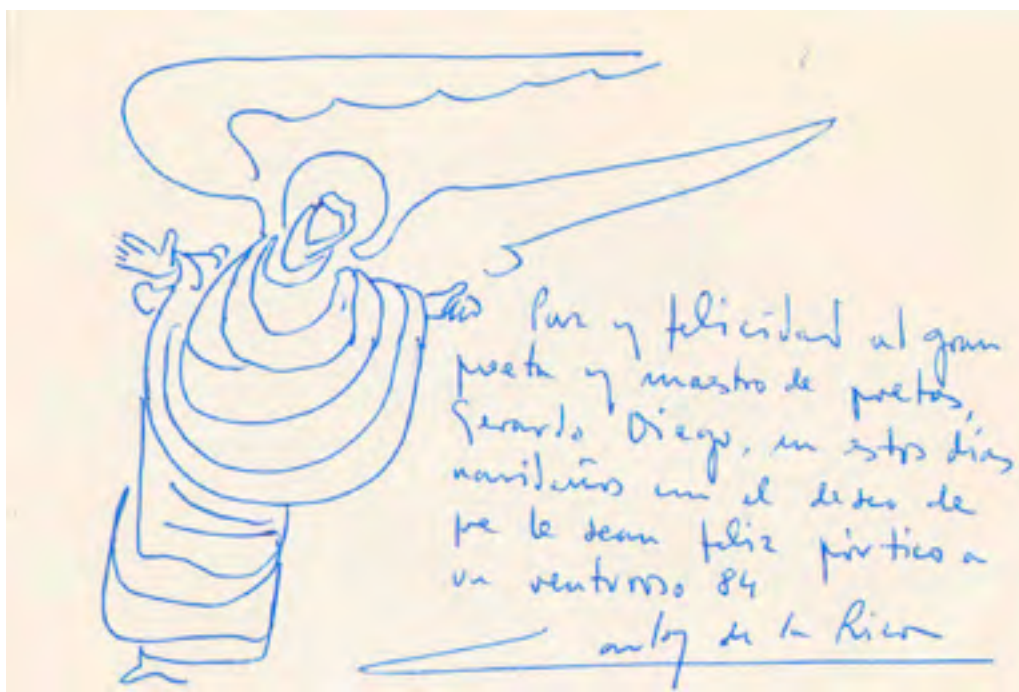 Paz y felicidad al gran
poeta y maestro de poetas,
Gerardo Diego, en estos días
navideños con el deseo de
que le sean feliz pórtico a
un venturoso 84
Carlos de la Rica